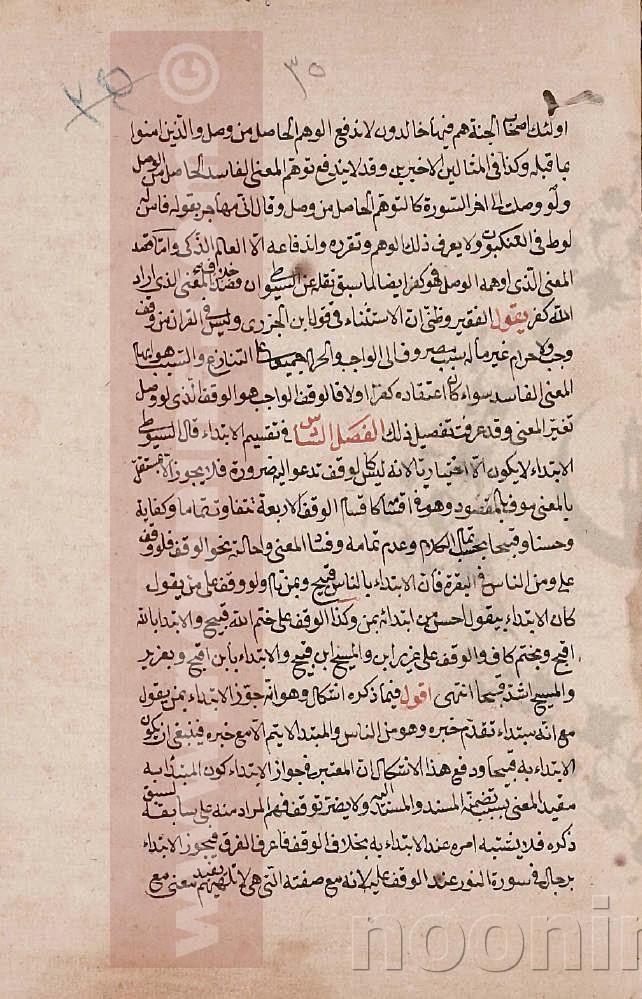 ٣٥
٣٥
اولئك اصحاب الجنة هم فيها خالدون لاندفع الوهم الحاصل من وصل والذين امنوا
بما قبله وكذا فى المثالين الاخيرين وقد لا يندفع توهم المعنى الفاسد الحاصل من الوصل
ولو وصلت الى اخر السورة كالتوهم الحاصل من وصل وقال انى مهاجر بقوله فامن له
لوط فى العنكبوت ولا يعرف ذلك الوهم وتقرره واندفاعه الا العالم الذكى واما قصد
المعنى الذى اوهمه الوصل فهو كفر ايضا لما سبق نقله عن السيوطى وان قصد خلاف المعنى الذى اراد
الله كفر يقول الفقير وظنى ان الاستثناء فى قول ابن الجزرى وليس فى القران من وقف
وجب ولا حرام غير ما له سبب مصروف الى الواجب والحرام جميعا على التنازع والسبب هو ايهام
المعنى الفاسد سواء كان اعتقاده كفرا اولا فالوقف الواجب هو الوقف الذى لو وصل
تغير المعنى وقد عرفت تفصيل ذلك الفصل السادس فى تقسيم الابتداء قال السيوطى
الابتداء لا يكون الا اختياريا لانه ليس كالوقف تدعو اليه ضرورة فلا يجوز الا بمستقل
بالمعنى موف بالمقصود وهو فى اقسامه كاقسام الوقف الاربعة تتفاوت تماما وكفاية
وحسنا وقبيحا بحسب تمام الكلام وعدم تمامه وفساد المعنى واحالته نحو الوقف فلو وقف
على ومن الناس فى البقرة فان الابتداء بالناس قبيح وبمن تام ولو وقف على من يقول
كان الابتداء بيقول احسن من ابتدائه بمن وكذا الوقف على ختم الله قبيح والابتداء بالله
اقبح وبختم كاف والوقف على عزير ابن والمسيح ابن قبيح والابتداء بابن اقبح وبعزير
والمسيح اشد قبيحا انتهى اقول فيما ذكره اشكال وهو انه جوز الابتداء بمن يقول
مع انه مبتداء تقدم خبره وهو من الناس والمبتدا لا يتم الا مع خبره فينبغى ان يكون
الابتداء به قبيحا ودفع هذا الاشكال ان المعتبر فى جواز الابتداء كون المبتدا به
مفيد المعنى بسبب تضمنه المسند والمسند اليه ولا يضر توقف فهم المراد منه على سابقه لسبق
ذكره فلا يشتبه امره عند الابتداء به بخلاف الوقف فاعرف الفرق فيجوز الابتداء
برجال فى سورة النور عند الوقف عليه لانه مع صفته التى هى لا تلهيهم يفيد معنى مع